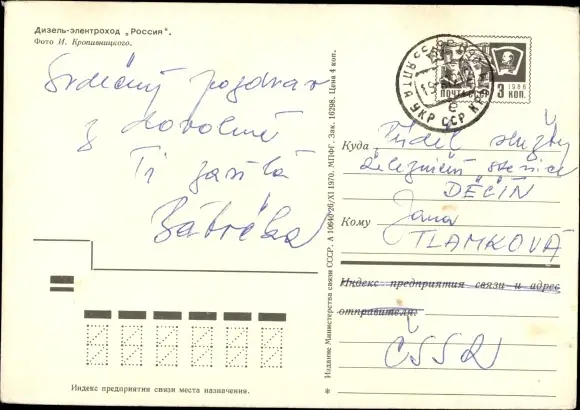 Дизель-электроход „Россия".
Фото И. Кропивницкого.
Srdečný pozdrav
z dovolené
Ti zasílá
Издание Министерства связи СССР. А 10640 26/XI 1970. МПФГ. Зак. 16298. Цена 4 коп.
ПОЧТА СССР
3 КОП.
1966
УКР ССР
Куда
služby
železniční stanice
DĚČÍN
Кому
Jana
TLAMKOVÁ
Индекс предприятия связи и адрес
отправителя:
ČSSR
Индекс предприятия связи места назначения.
*